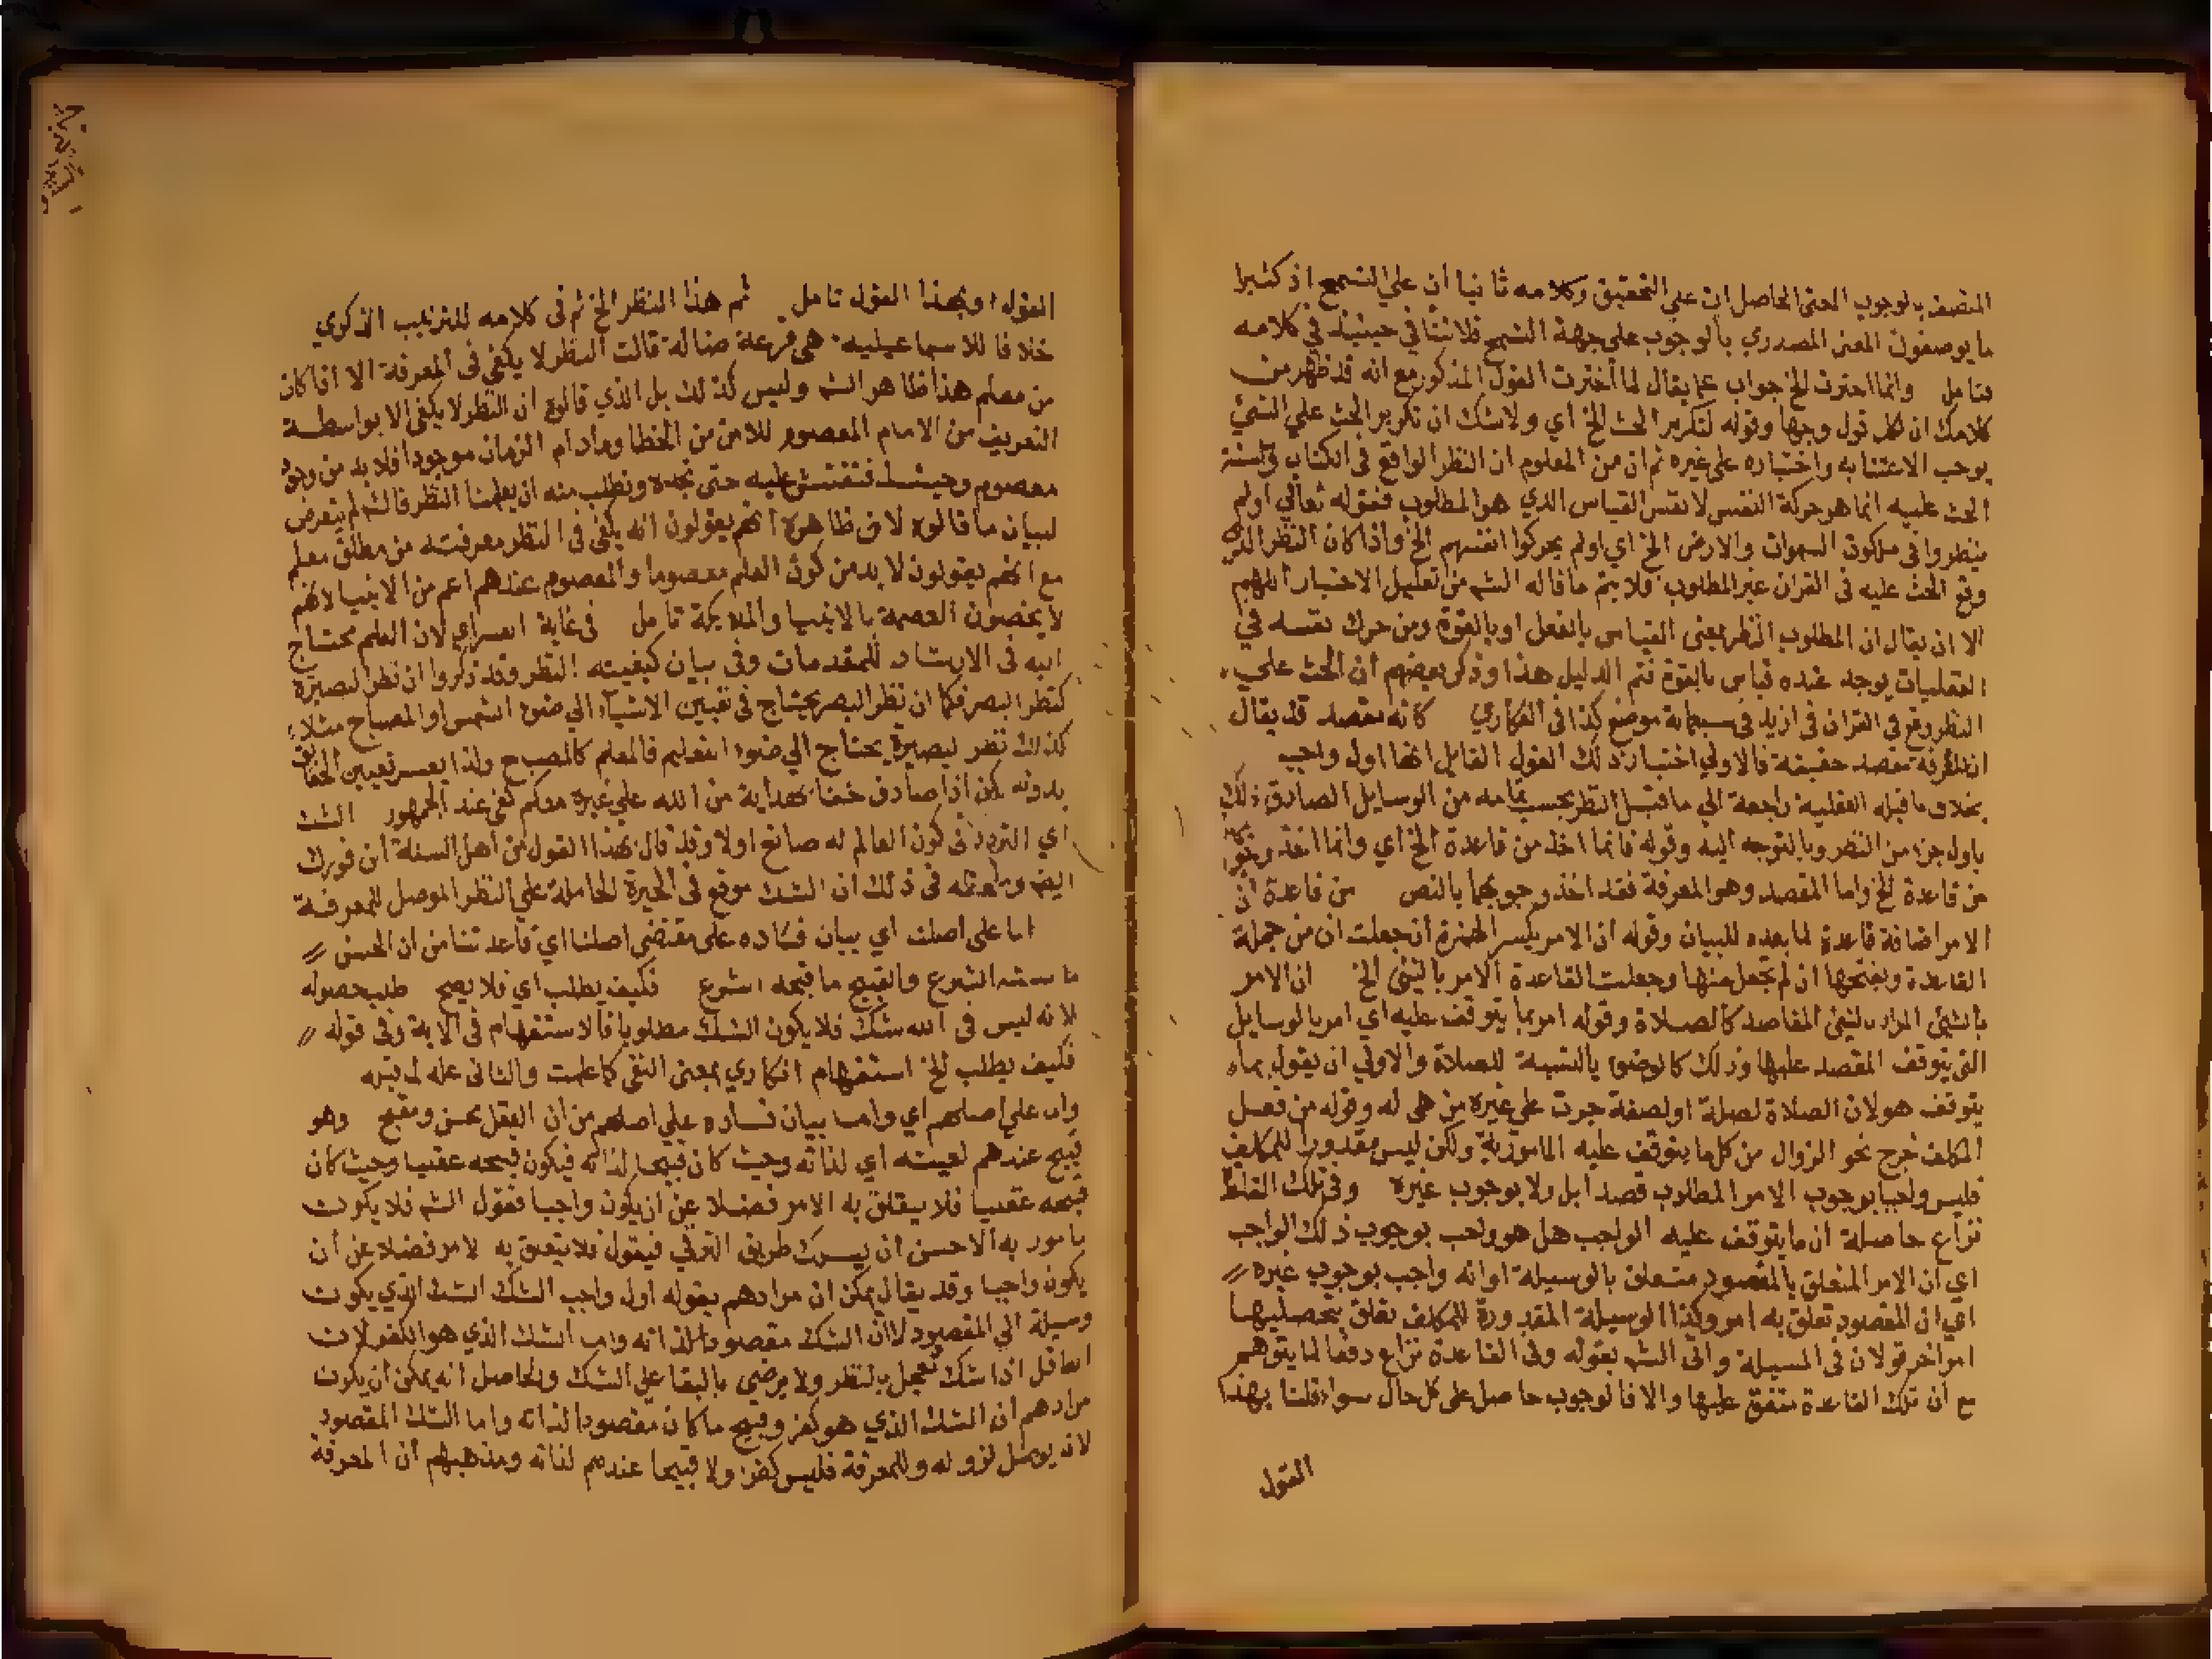 المتصف بالوجوب المعنى الحاصل ان على التحقيق وكلامه ثانيا ان على التسمح اذ كثيرا
ما يوصفون المعنى المصدري بالوجوب على جهة التسمح فلا تنافي حينئذ في كلامه
تامل وانما اخترت الخ جواب عما يقال لما اخترت القول المذكور مع انه قد ظهر من
كلامك ان لكل قول وجها وقوله لتكرير الحث الخ اي ولا شك ان تكرير الحث على الشئ
يوجب الاعتنا به واختياره على غيره ثم ان من المعلوم ان النظر الواقع في الكتاب
الحث عليه انما هو حركة النفس لا نفس القياس الذي هو المطلوب فقوله تعالى اولم
ينظروا في ملكوت السموات والارض الخ اي اولم يحركوا انفسهم الخ واذا كان النظر الذي
وقع الحث عليه في القران غير المطلوب فلا يتم ما قاله الشه من تعليل الاختيار اللهم
الا ان يقال ان المطلوب النظر بمعنى القياس بالفعل او بالقوة ومن حرك نفسه في
العقليات يوجد عنده قياس بالقوة فتم الدليل هذا وذكر بعضهم ان الحث على
النظر وقع في القران في ازيد من سبعماية موضع كذا في الفكاري كانه مقصد قد يقال
ان المعرفة مقصد حقيقة فالاولى اختيار ذلك القول القايل انها اول واجب
بخلاف ما قبله القبلية راجعة الي ما قبل النظر بحسب تمامه من الوسايل الصادق ذلك
باول جزء من النظر وبالتوجه اليه وقوله فانما اخذ من قاعدة الخ اي وانما اخذ وجوبه
من قاعدة الخ واما المقصد وهو المعرفة فقد اخذ وجوبها بالنص من قاعدة ان
الامر اضافة قاعدة لما بعده للبيان وقوله ان الامر بكسر الهمزة ان جعلت ان من جملة
القاعدة وبفتحها ان لم تجعل منها وجعلت القاعدة الامر بالشئ الخ ان الامر
بالشئ المراد بالشئ المقاصد كالصلاة وقوله امر بما يتوقف عليه اي امر بالوسايل
التي يتوقف المقصد عليها وذلك كالوضوء بالنسبة للصلاة والاولى ان يقول بماه
يتوقف هو لان الصلاة لصلة او لصفة جرت على غيره من هي له وقوله من فعل
المكلف خرج نحو الزوال من كل ما يتوقف عليه المامور به ولكن ليس مقدورا للمكلف
فليس واجبا بوجوب الامر المطلوب قصدا بل ولا بوجوب غيره وفي تلك القاعدة
نزاع حاصلة ان ما يتوقف عليه الواجب هل هو واجب بوجوب ذلك الواجب
اي ان الامر المتعلق بالمقصود متعلق بالوسيلة او انه واجب بوجوب غيره
اي ان المقصود تعلق به امر وكذا الوسيلة المقدورة للمكلف تعلق بتحصيلها
امر اخر قولان في المسيلة واتى الشه بقوله وفي القاعدة نزاع دفعا لما يتوهم
من ان تلك القاعدة متفق عليها والا فالوجوب حاصل على كل حال سواء قلنا بهذا
القول
القول او بهذا القول تامل ثم هذا النظر الخ ثم في كلامه للترتيب الذكري
خلافا للاسماعيلية هي فرقة ضالة قالت النظر لا يكفي في المعرفة الا اذا كان
من معلم هذا ظاهر الشه وليس كذلك بل الذي قالوه ان النظر لا يكفي الا بواسطة
التعريف من الامام المعصوم للامن من الخطا وما دام الزمان موجودا فلا بد من وجود
معصوم وحينئذ فنفتش عليه حتى نجده ونطلب منه ان يعلمنا النظر فالشه لم يتعرض
لبيان ما قالوه لان ظاهره انهم يقولون انه يكفي في النظر معرفته من مطلق معلم
مع انهم يقولون لا بد من كون المعلم معصوما والمعصوم عندهم اعم من الانبيا لانهم
لا يخصون العصمة بالانبيا والملايكة تامل في غاية العسر اي لان المعلم محتاج
اليه في الارشاد للمقدمات وفي بيان كيفيته النظر وقد ذكروا ان نظر البصيرة
كنظر البصر فكما ان نظر البصر يحتاج في تعيين الاشياء الي ضوء الشمس او المصباح مثلا
كذلك نظر البصيرة يحتاج الي ضوء التعليم فالمعلم كالمصباح ولذا يعسر تعيين الحقايق
بدونه لكن اذا صادف شخصا هداية من الله على غيره معكم كفى عند الجمهور الشك
اي التردد في كون العالم له صانع اولا وقد قال بهذا القول من اهل السنة ابن فورك
ايضا وملحظه في ذلك ان الشك موقع في الحيرة الحاملة على النظر الموصل للمعرفة
اما على اصلنا اي بيان فساده على مقتضى اصلنا اي قاعدتنا من ان الحسن
ما حسنه الشرع والقبيح ما قبحه الشرع فكيف يطلب اي فلا يصح طلب حصوله
لانه ليس في الله شك فلا يكون الشك مطلوبا فالاستفهام في الاية وفي قوله
فكيف يطلب الخ استفهام انكاري بمعنى النفي كما علمت والثانى علة لما قبله
واما على اصلهم اي واما بيان فساده على اصلهم من ان العقل يحسن ويقبح وهو
قبيح عندهم لعينه اي لذاته وحيث كان قبيحا لذاته فيكون قبحه عقليا وحيث كان
قبحه عقليا فلا يتعلق به الامر فضلا عن ان يكون واجبا فقول الشه فلا يكون
مامورا به الاحسن ان يسلك طريق الترقي فيقول فلا يتعلق به الامر فضلا عن ان
يكون واجبا وقد يقال يمكن ان مرادهم بقوله اول واجب الشك الشك الذي يكون
وسيلة الي المقصود لا ان الشك مقصودا لذاته واما الشك الذي هو الكفر لان
العاقل اذا شك تعجل بالنظر ولا يرضى بالبقا على الشك والحاصل انه يمكن ان يكون
مرادهم ان الشك الذي هو كفر وقبيح ما كان مقصودا لذاته واما الشك المقصود
لانه يوصل لزواله وللمعرفة فليس كفرا ولا قبيحا عندهم لذاته ومذهبهم ان المعرفة